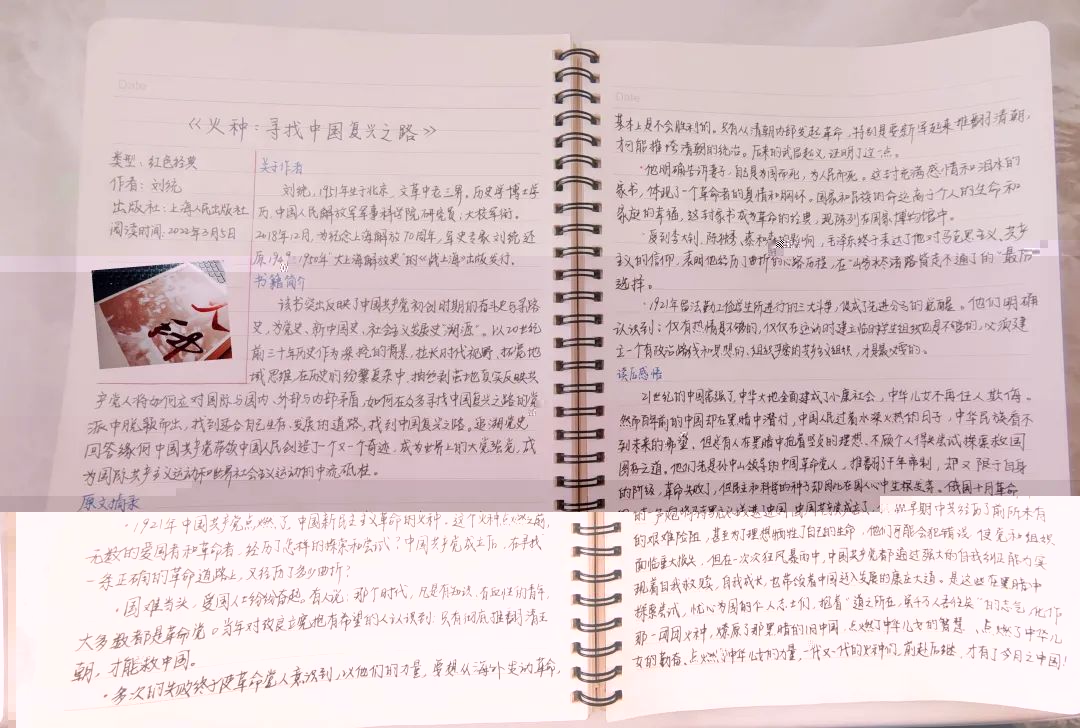 Date
《火种：寻找中国复兴之路》
类型：红色经典
作者：刘统
出版社：上海人民出版社
阅读时间：2022年3月5日
关于作者
刘统，1951年生于北京，文革中老三界。历史学博士学
历，中国人民解放军军事科学院，研究员，大校军衔。
2018年12月，为纪念上海解放70周年，军史专家刘统还
原1949—1950年"大上海解放史"的《战上海》出版发行。
书籍简介
该书突出反映了中国共产党初创时期的奋斗史与寻路
史，为党史、新中国史、社会主义发展史"溯源"。以20世纪
前三十年历史作为深挖的背景，拉长时代视野，拓宽地
域思维，在历史的纷繁复杂中，抽丝剥茧地真实反映共
产党人将如何应对国际与国内、外部与内部矛盾，如何在众多寻找中国复兴之路的党
派中脱颖而出，找到适合自己生存、发展的道路，找到中国复兴之路。追溯党史，
回答缘何中国共产党带领中国人民创造了一个又一个奇迹，成为世界上的大党强党，成
为国际共产主义运动和世界社会主义运动的中流砥柱。
原文摘录
·1921年中国共产党点燃了中国新民主主义革命的火种。这个火种点燃之前，
无数的爱国者和革命者，经历了怎样的探索和尝试？中国共产党成立后，在寻找
一条正确的革命道路上，又经历了多少曲折？
·国难当头，爱国人士纷纷奋起。有人说：那个时代，凡是有知识、有血性的青年，
大多数都是革命党。当年对改良立宪抱有希望的人认识到：只有彻底推翻清王
朝，才能救中国。
·多次的失败终于使革命党人意识到，以他们的力量，要想从海外发动革命，
Date
基本上是不会胜利的。只有从清朝内部发起革命，特别是要新军起来推翻清朝，
才可能推垮清朝的统治。后来的武昌起义，证明了这一点。
·他明确告诉妻子，自己是为国而死，为人民而死。这封充满感情和泪水的
家书，体现了一个革命者的真情和胸怀。国家和民族的命运高于个人的生命和
家庭的幸福，这封家书成为革命的经典，现陈列在国家博物馆中。
·受到李大钊、陈独秀、蔡和森的影响，毛泽东终于表达了他对马克思主义、共产
主义的信仰，表明他经历了曲折的心路历程，在"山穷水尽诸路皆走不通了的"最后
选择。
·1921年留法勤工俭学生所进行的三大斗争，促成了先进分子的觉醒。他们明确
认识到：仅有热情是不够的，仅仅在运动时建立临时学生组织也是不够的，必须建
立一个有政治路线和思想的、组织严密的共产主义组织，才是最必要的。
读后感悟
21世纪的中国富强了，中华大地全面建成了小康社会，中华儿女不再任人欺侮。
然而百年前的中国却在黑暗中潜行，中国人民过着水深火热的日子，中华民族看不
到未来的希望。但是有人在黑暗中抱着坚贞的理想，不顾个人得失尝试探索救国
图存之道。他们先是孙中山领导的中国革命党人，推翻了千年帝制，却又限于自身
的阶级，革命失败了，但民主和科学的种子却因此在国人心中生根发芽。俄国十月革命
的一声炮将马克思主义送进中国，中国共产党成立了。从早期中共经历了前所未有
的艰难险阻，甚至为了理想牺牲了自己的生命，他们可能会犯错误，使党和组织
面临重大损失，但在一次次狂风暴雨中，中国共产党都通过强大的自我纠正能力实
现着自我救赎，自我成长，也带领着中国进入发展的康庄大道。是这些在黑暗中
探索尝试，忧心为国的个人志士们，抱着"道之所在，虽千万人吾往矣"的志气，化作
那一团团火种，燎原了那黑暗的旧中国，点燃了中华儿女的智慧、点燃了中华儿
女的勤奋、点燃了中华儿女的力量，一代又一代的火种们，前赴后继，才有了今日之中国！